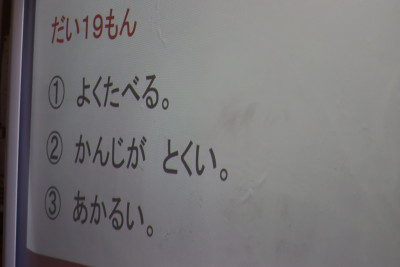 だい19もん
① よくたべる。
② かんじが とくい。
③ あかるい。